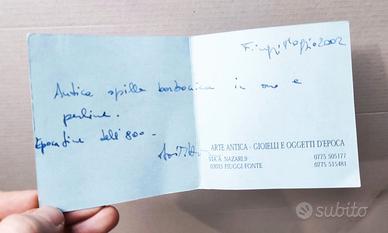 Fiuggi Maggio 2002
Antica spilla borbonica in oro e
perline.
Epoca fine dell'800.
ARTE ANTICA - GIOIELLI E OGGETTI D'EPOCA
VIA V. NAZARI, 9 0775 505177
03015 FIUGGI FONTE 0775 515481
subito